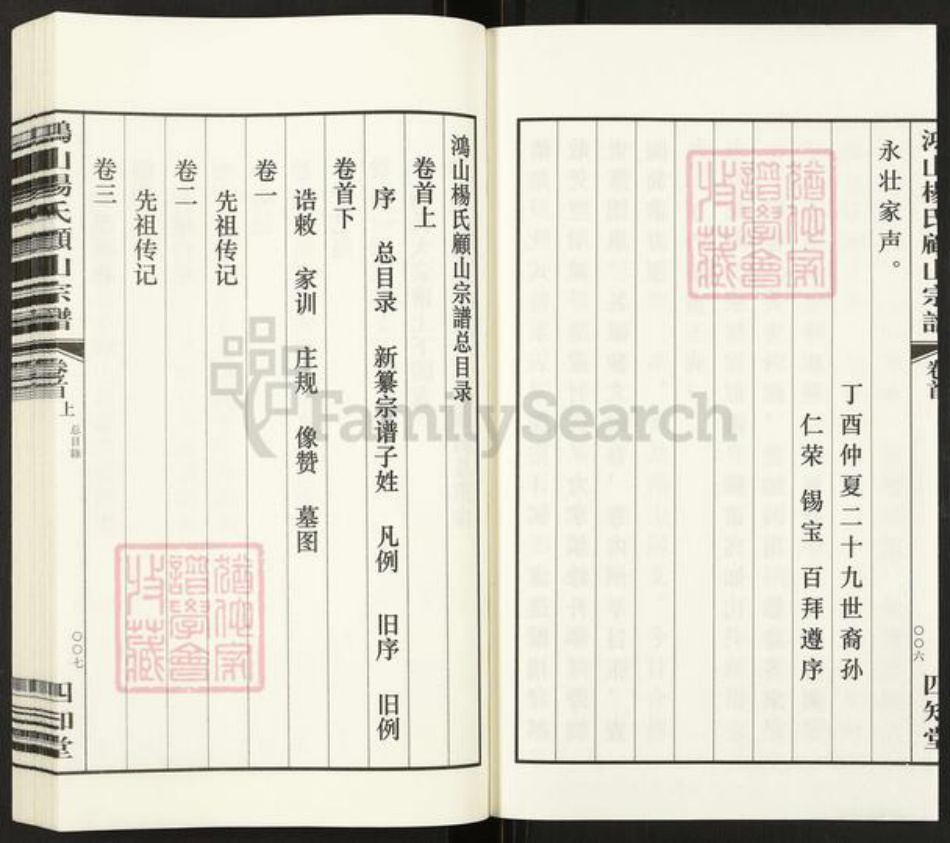 永壮家声。
丁酉仲夏二十九世裔孙
仁荣 锡宝 百拜遵序
鴻山楊氏顧山宗譜
卷首
〇〇六
四知堂
鴻山楊氏顧山宗譜总目录
卷首上
序 总目录 新纂宗谱子姓 凡例 旧序 旧例
卷首下
诰敕 家训 庄规 像赞 墓图
卷一
先祖传记
卷二
先祖传记
卷三
鴻山楊氏顧山宗譜
卷首上
总目錄
〇〇七
四知堂
FamilySearch